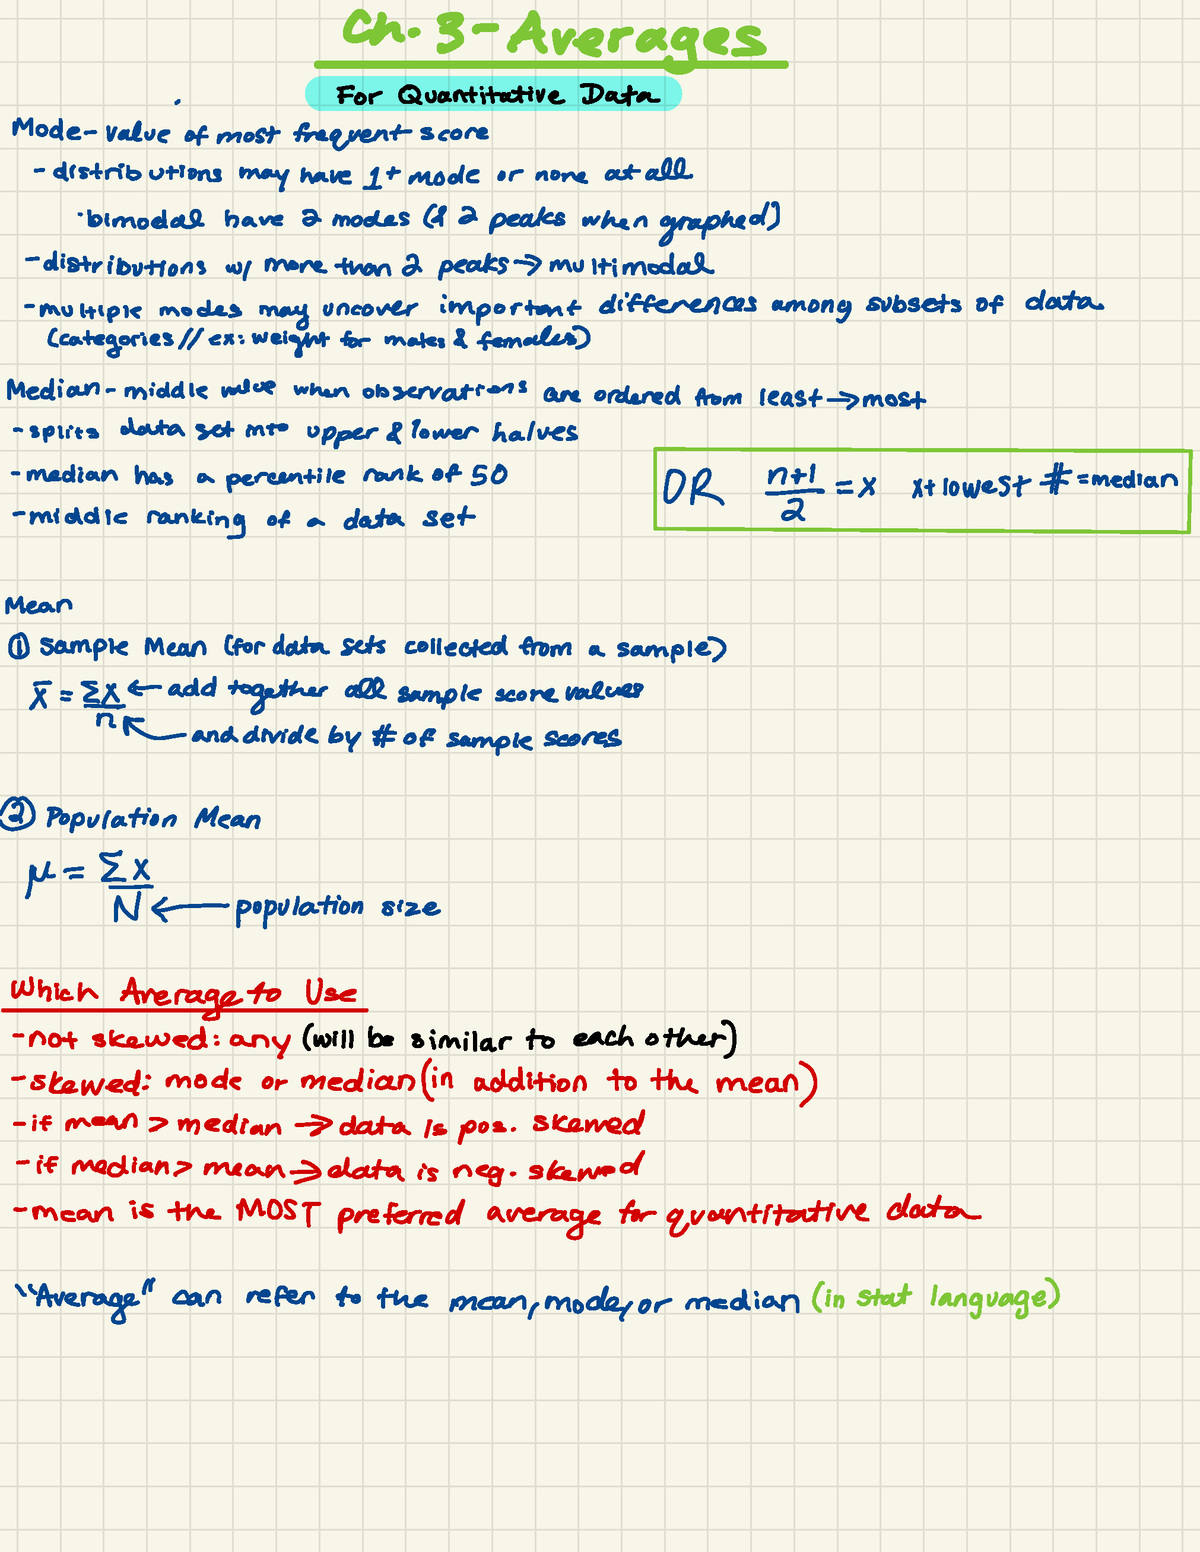 Ch. 3 - Averages
For Quantitative Data
Mode - value of most frequent score
- distributions may have 1+ mode or none at all
· bimodal have 2 modes (& 2 peaks when graphed)
- distributions w/ more than 2 peaks → multimodal
- multiple modes may uncover important differences among subsets of data
(categories // ex: weight for males & females)
Median - middle value when observations are ordered from least → most
- splits data set into upper & lower halves
- median has a percentile rank of 50
- middle ranking of a data set
OR n+1/2 = x x+ lowest # = median
Mean
① Sample Mean (for data sets collected from a sample)
x̄ = Σx ← add together all sample score values
n ← and divide by # of sample scores
② Population Mean
μ = Σx
N ← population size
Which Average to Use
- not skewed: any (will be similar to each other)
- skewed: mode or median (in addition to the mean)
- if mean > median → data is pos. skewed
- if median > mean → data is neg. skewed
- mean is the MOST preferred average for quantitative data
"Average" can refer to the mean, mode, or median (in stat language)